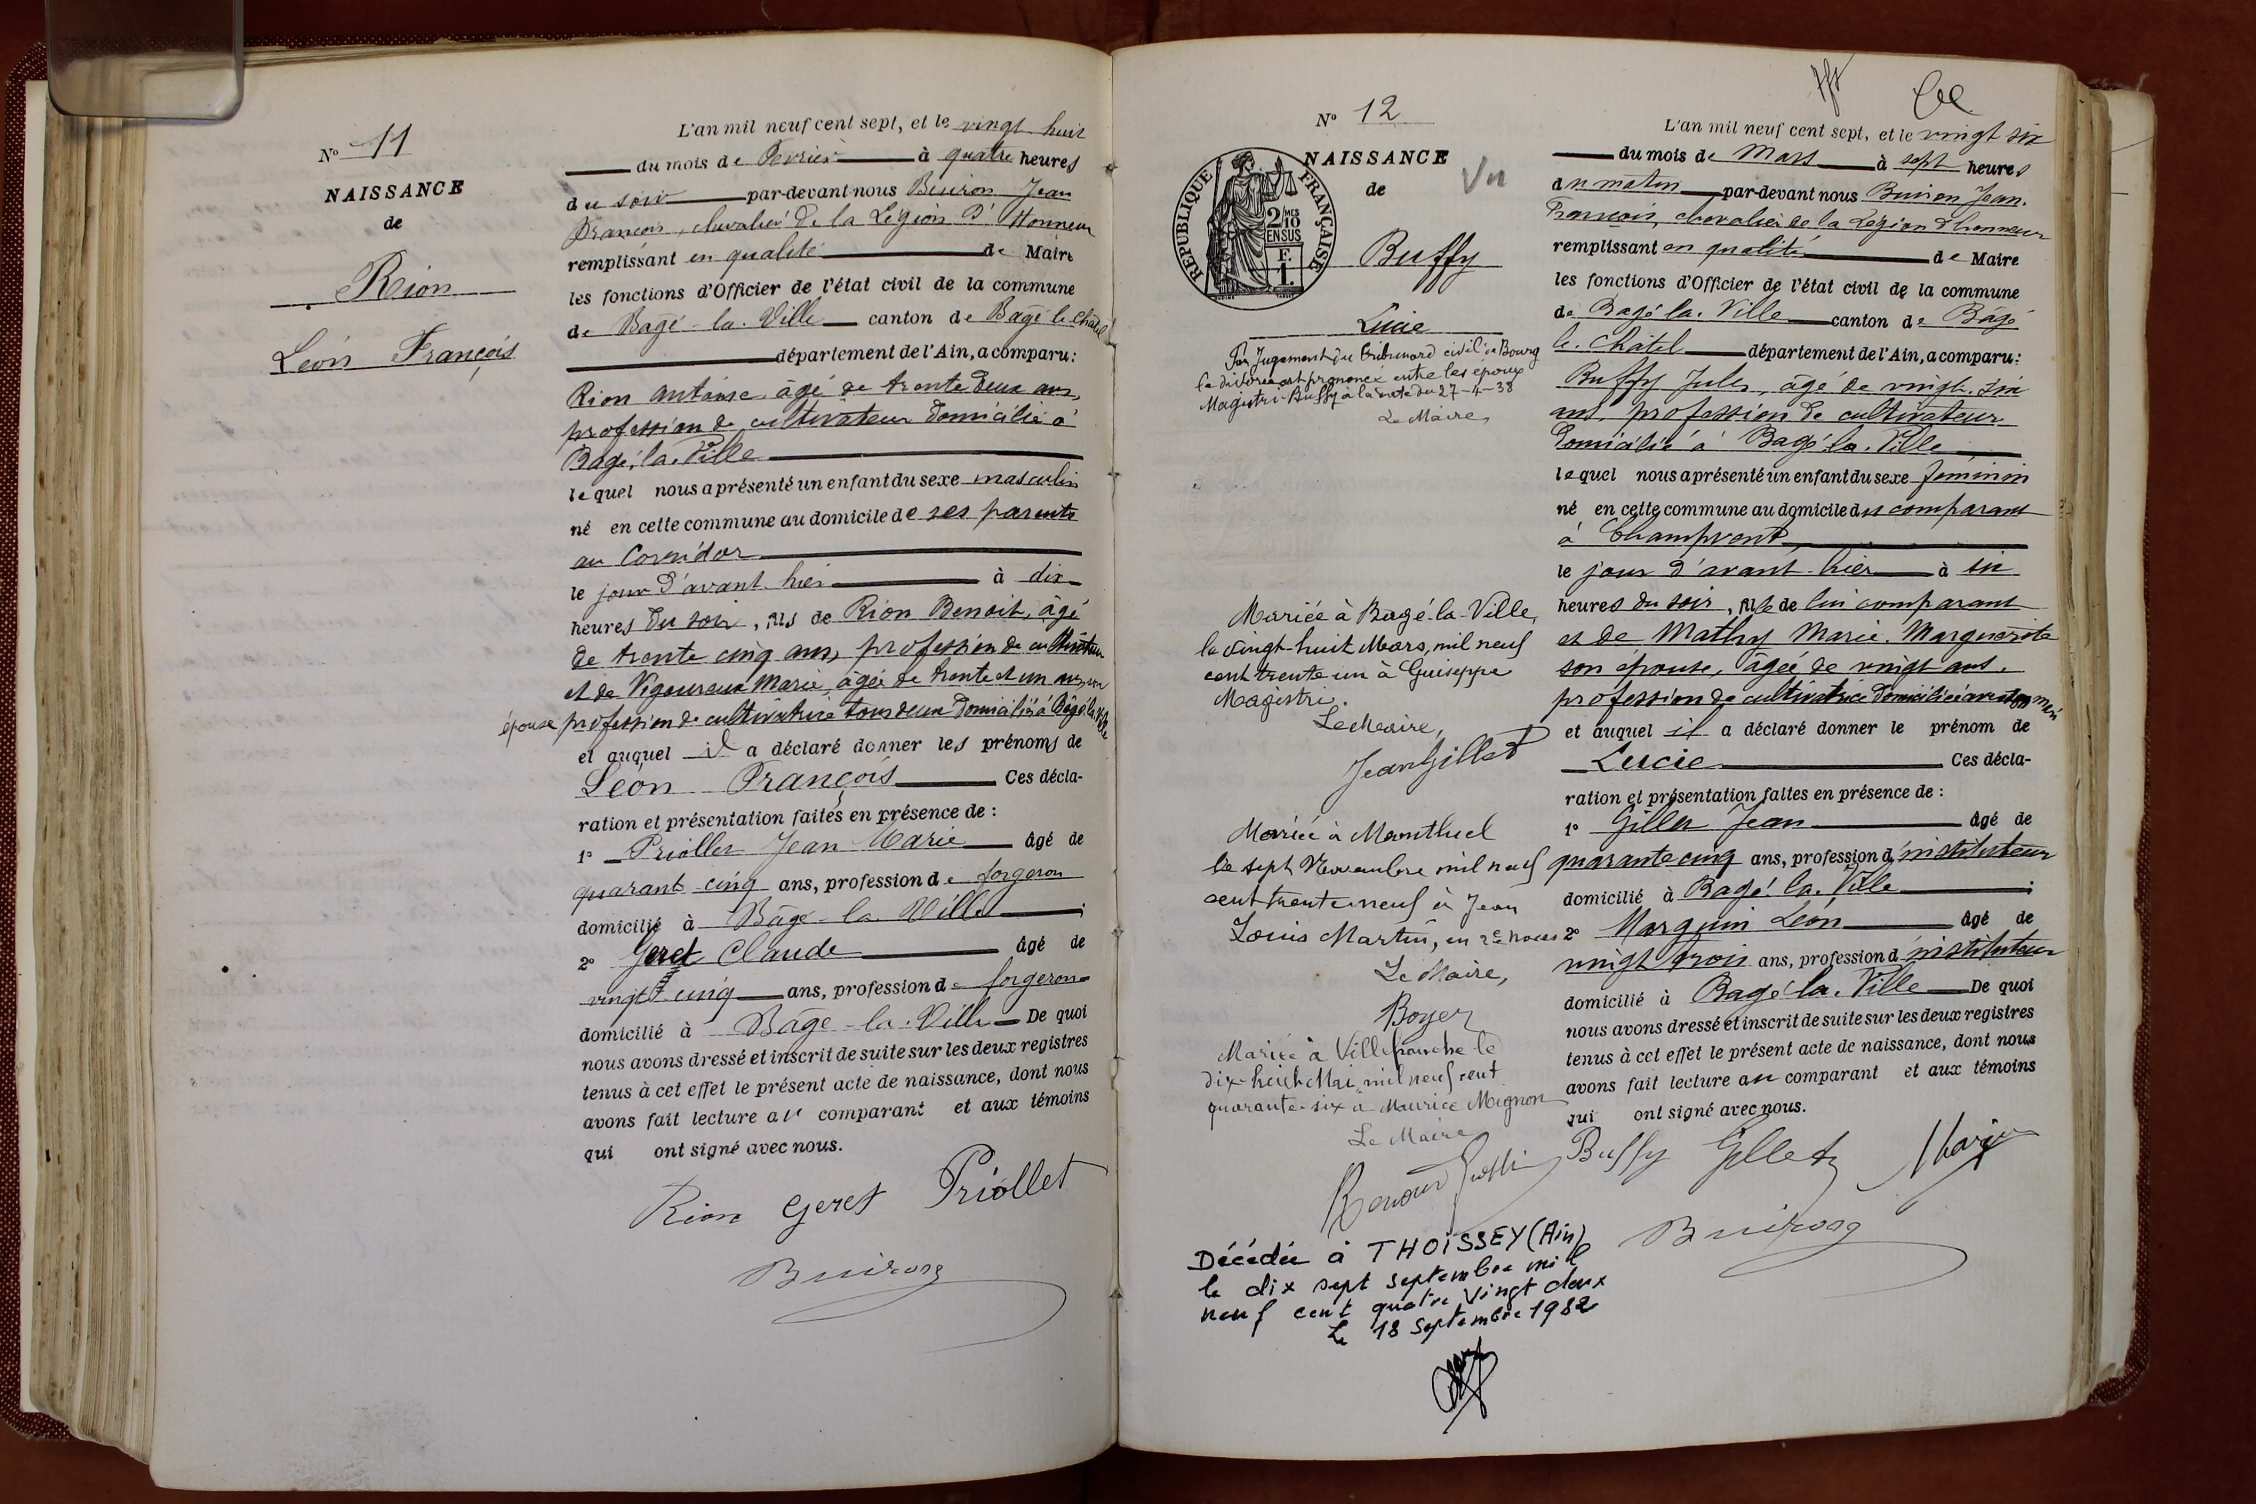 N° 11
NAISSANCE
de
Rion
Léon François
L'an mil neuf cent sept, et le vingt huit
du mois de Février à quatre heures
du soir par-devant nous Buiron Jean
François, chevalier de la Légion d'Honneur
remplissant en qualité de Maire
les fonctions d'Officier de l'état civil de la commune
de Bagé-la-Ville canton de Bagé le Châtel
département de l'Ain, a comparu:
Rion Antoine âgé de trente deux ans,
profession de cultivateur domicilié à
Bagé, la Ville
lequel nous a présenté un enfant du sexe masculin
né en cette commune au domicile de ses parents
au Corridor
le jour d'avant hier à dix
heures du soir, fils de Rion Benoit, âgé
de trente cinq ans, profession de cultivateur
et de Vigoureux Marie, âgée de trente et un ans, son
épouse profession de cultivatrice tous deux domiciliés à Bâgé la Ville
et auquel il a déclaré donner les prénoms de
Léon François Ces décla-
ration et présentation faites en présence de :
1° Priollet Jean Marie âgé de
quarant cinq ans, profession de forgeron
domicilié à Bâgé-la Ville ;
2° Geret Claude âgé de
vingt cinq ans, profession de forgeron
domicilié à Bâgé-la-Ville De quoi
nous avons dressé et inscrit de suite sur les deux registres
tenus à cet effet le présent acte de naissance, dont nous
avons fait lecture au comparant et aux témoins
qui ont signé avec nous.
Rion Geret Priollet
Buiron
N° 12
NAISSANCE
de
Vu
RÉPUBLIQUE FRANÇAISE
2/10 EN SUS
F.
1.
Buffy
Lucie
Par Jugement du tribunal civil de Bourg
le divorce est prononcé entre les époux
Magistri-Buffy à la date du 27-4-38
Le Maire,
Mariée à Bagé-la-Ville,
le vingt-huit Mars, mil neuf
cent trente un à Guiseppe
Magistri.
Le Maire,
Jean Gillet
Mariée à Montluel
le sept Novembre mil neuf
cent trente neuf à Jean
Louis Martin, en 2e noces
Le Maire,
Boyer
Mariée à Villefranche le
dix-huit Mai mil neuf cent
quarante-six à Maurice Mignon
Le Maire
Décédée à THOISSEY (Ain)
le dix sept septembre mil
neuf cent quatre vingt deux
Le 18 septembre 1982
L'an mil neuf cent sept, et le vingt six
du mois de Mars à sept heures
du matin par-devant nous Buiron Jean.
François, chevalier de la Légion d'honneur
remplissant en qualité de Maire
les fonctions d'Officier de l'état civil de la commune
de Bagé la Ville canton de Bagé
le Châtel département de l'Ain, a comparu:
Buffy Jules, âgé de vingt six
ans, profession de cultivateur
domicilié à Bagé la Ville
lequel nous a présenté un enfant du sexe féminin
né en cette commune au domicile du comparant
à Champvent
le jour d'avant-hier à six
heures du soir, fille de lui comparant
et de Mathy Marie Marguerite
son épouse, âgée de vingt ans,
profession de cultivatrice domiciliée avec son mari
et auquel il a déclaré donner le prénom de
Lucie Ces décla-
ration et présentation faites en présence de :
1° Gillet Jean âgé de
quarante cinq ans, profession d'instituteur
domicilié à Bagé la Ville ;
2° Marguin Léon âgé de
vingt trois ans, profession d'instituteur
domicilié à Bagé la Ville De quoi
nous avons dressé et inscrit de suite sur les deux registres
tenus à cet effet le présent acte de naissance, dont nous
avons fait lecture au comparant et aux témoins
qui ont signé avec nous.
Buffy Gillet
Buiron